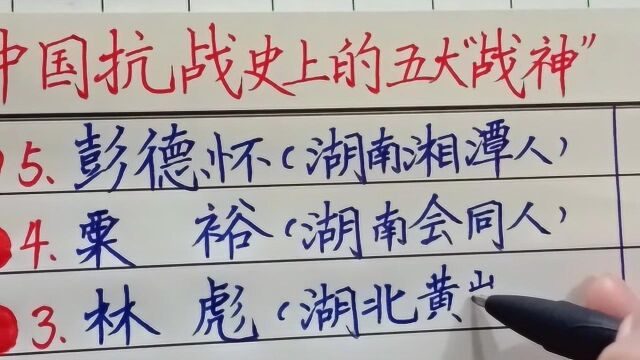 中国抗战史上的五大"战神"
5.彭德怀(湖南湘潭人)
4.粟 裕(湖南会同人)
3.林 彪(湖北黄